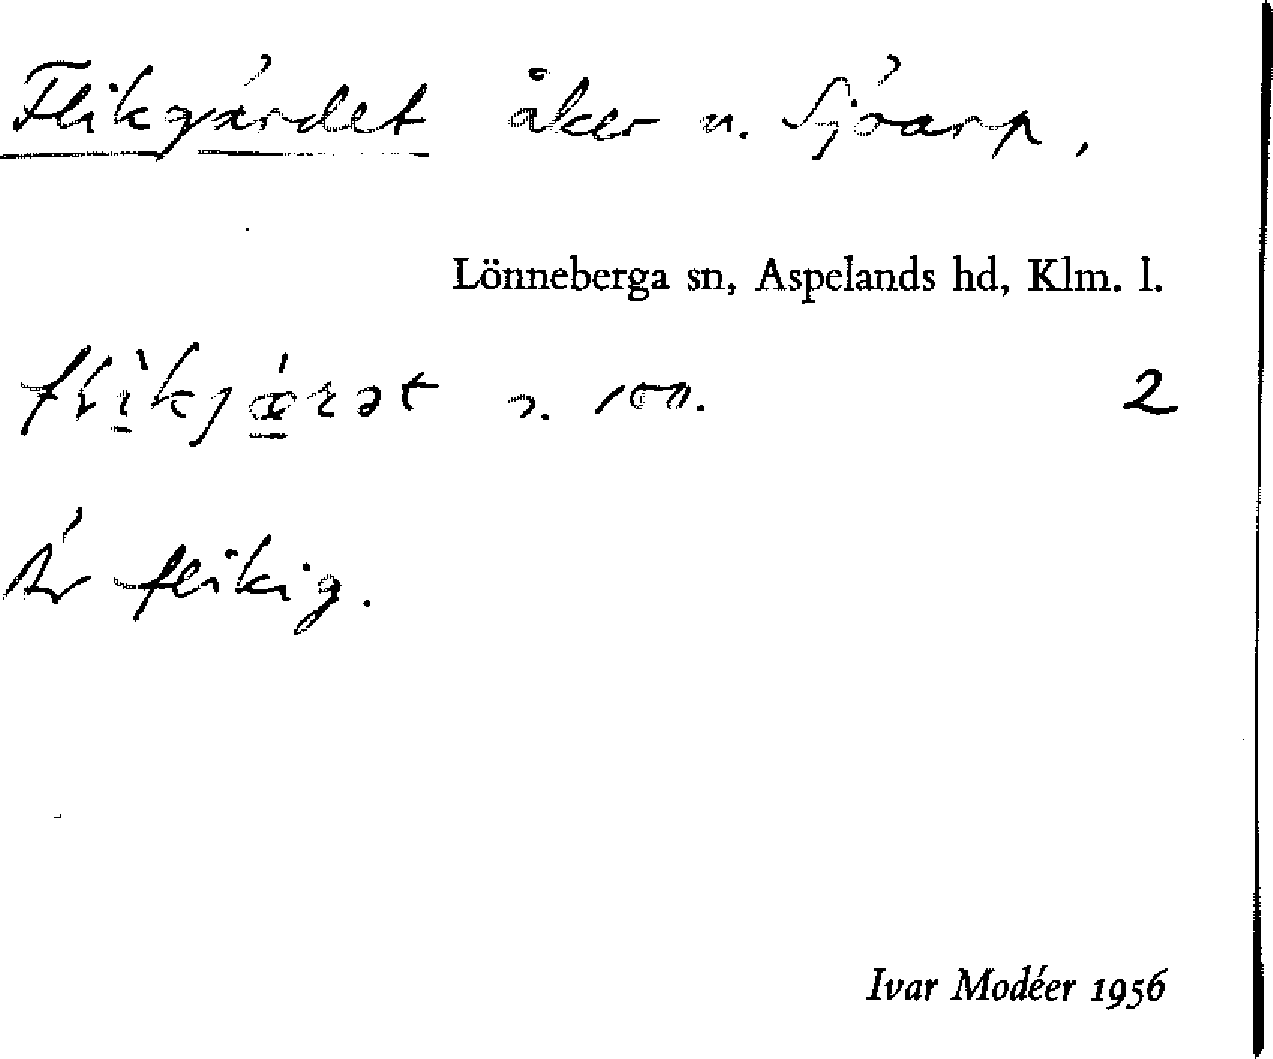 Flikgärdet åker u. Sjöarp,
Lönneberga sn, Aspelands hd, Klm. l.
2
Är flikig.
Ivar Modéer 1956